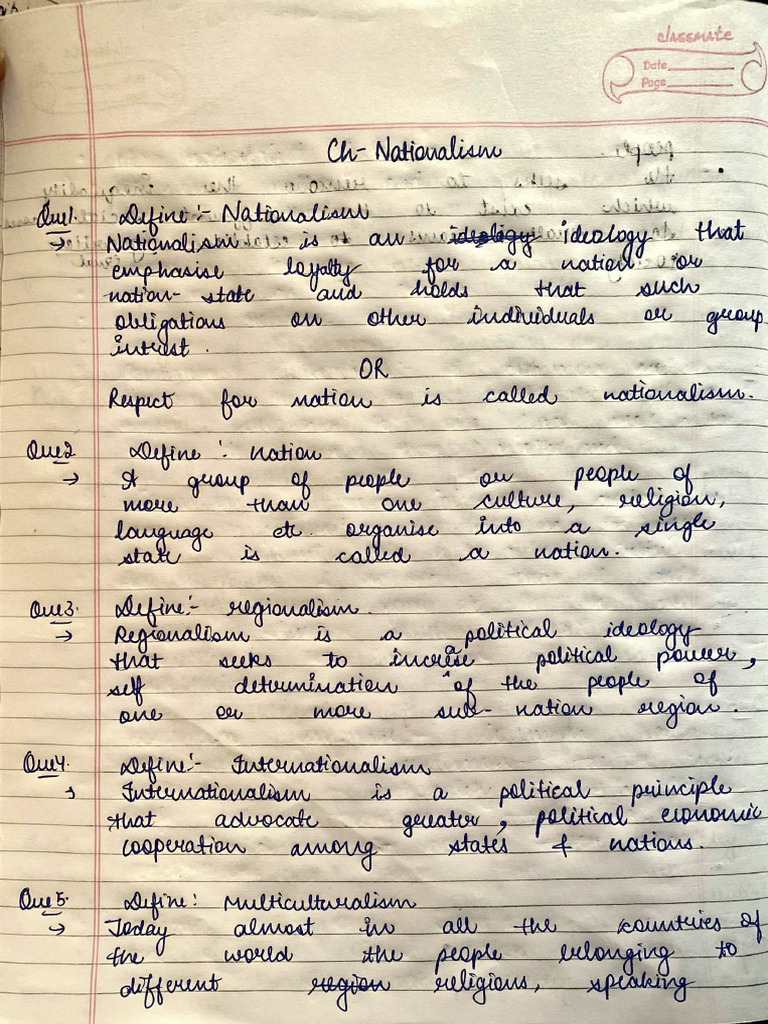 classmate
Date
Page
Ch- Nationalism
Que1. Define :- Nationalism
→ Nationalism is an ideology that
emphasise loyalty for a nation or
nation- state and holds that such
obligations on other individuals or group
intrest.
OR
Respect for nation is called nationalism.
Que2 Define : nation
→ A group of people or people of
more than one culture, religion,
language etc organise into a single
state is called a nation.
Que3. Define:- regionalism.
→ Regionalism is a political ideology
that seeks to increase political power,
self determination of the people of
one or more sub- nation region.
Que4. Define:- Internationalism
→ Internationalism is a political principle
that advocate greater, political economic
cooperation among states & nations.
Que5. Define: Multiculturalism
→ Today almost in all the countries of
the world the people belonging to
different religions, speaking